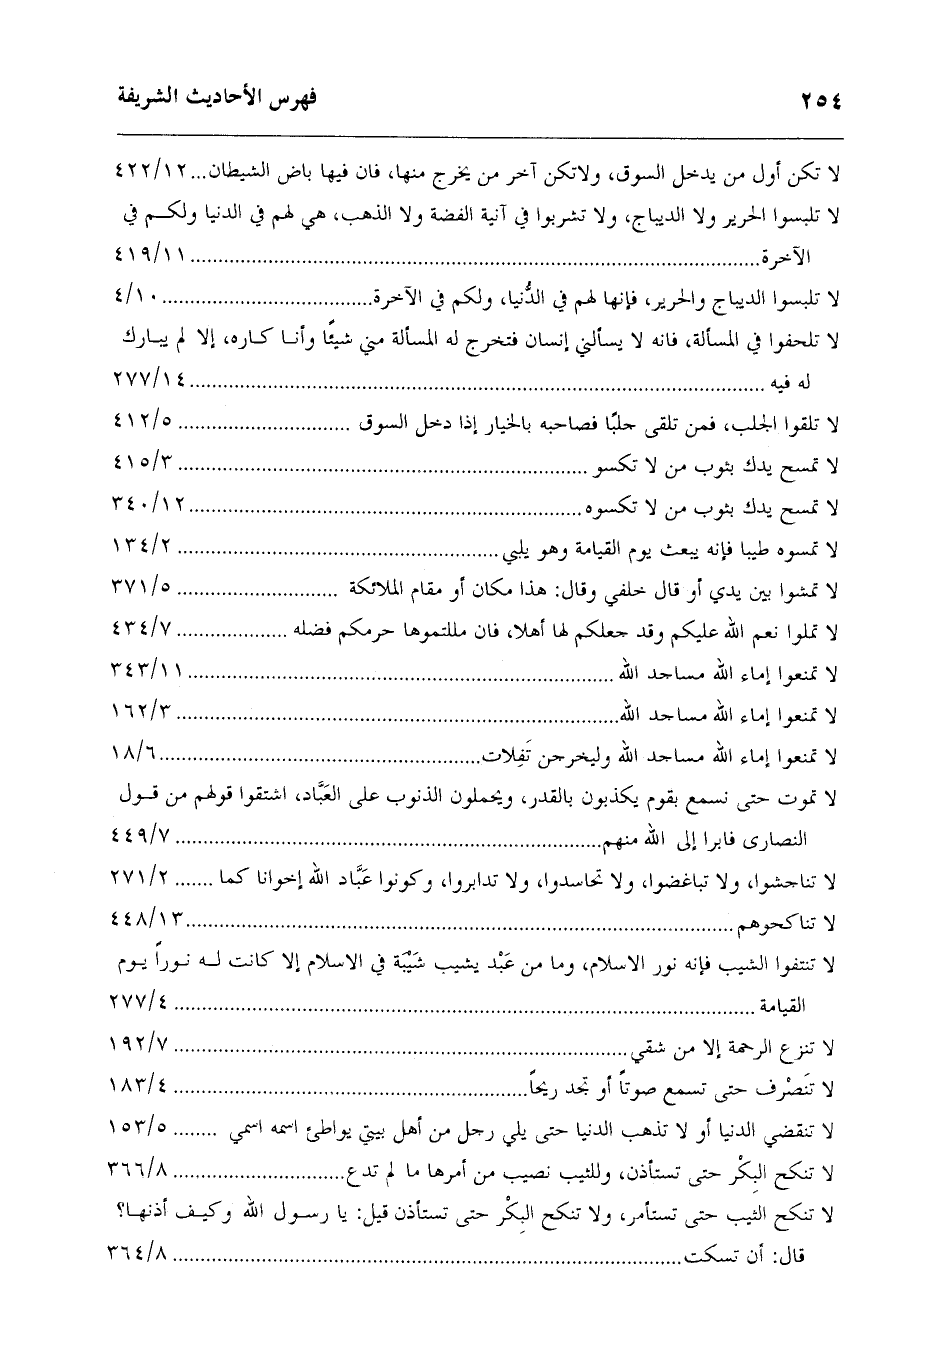 ٢٥٤ فهرس الأحاديث الشريفة
لا تكن أول من يدخل السوق، ولاتكن آخر من يخرج منها، فان فيها باض الشيطان... ٤٢٢/١٢
لا تلبسوا الحرير ولا الديباج، ولا تشربوا في آنية الفضة ولا الذهب، هي لهم في الدنيا ولكم في
الآخرة ........ ٤١٩/١١
لا تلبسوا الديباج والحرير، فإنها لهم في الدُّنيا، ولكم في الآخرة ........ ٤/١٠
لا تلحفوا في المسألة، فانه لا يسألني إنسان فتخرج له المسألة مني شيئًا وأنا كاره، إلا لم يبارك
له فيه ........ ٢٧٧/١٤
لا تلقوا الجلب، فمن تلقى حلبًا فصاحبه بالخيار إذا دخل السوق ........ ٤١٢/٥
لا تمسح يدك بثوب من لا تكسو ........ ٤١٥/٣
لا تمسح يدك بثوب من لا تكسوه ........ ٣٤٠/١٢
لا تمسوه طيبا فإنه يبعث يوم القيامة وهو يلبي ........ ١٣٤/٢
لا تمشوا بين يدي أو قال خلفي وقال: هذا مكان أو مقام الملائكة ........ ٣٧١/٥
لا تملوا نعم الله عليكم وقد جعلكم لها أهلا، فان مللتموها حرمكم فضله ........ ٤٣٤/٧
لا تمنعوا إماء الله مساجد الله ........ ٣٤٣/١١
لا تمنعوا إماء الله مساجد الله ........ ١٦٢/٣
لا تمنعوا إماء الله مساجد الله وليخرجن تَفِلات ........ ١٨/٦
لا تموت حتى نسمع بقوم يكذبون بالقدر، ويحملون الذنوب على العَبَّاد، اشتقوا قولهم من قول
النصارى فابرا إلى الله منهم ........ ٤٤٩/٧
لا تناجشوا، ولا تباغضوا، ولا تحاسدوا، ولا تدابروا، وكونوا عَبَّاد الله إخوانا كما ....... ٢٧١/٢
لا تناكحوهم ........ ٤٤٨/١٣
لا تنتفوا الشيب فإنه نور الاسلام، وما من عَبْد يشيب شَيْبَة في الاسلام إلا كانت له نوراً يوم
القيامة ........ ٢٧٧/٤
لا تنزع الرحمة إلا من شقي ........ ١٩٢/٧
لا تَنصْرف حتى تسمع صوتاً أو تجد ريحاً ........ ١٨٣/٤
لا تنقضي الدنيا أو لا تذهب الدنيا حتى يلي رجل من أهل بيتي يواطئ اسمه اسمي ........ ١٥٣/٥
لا تنكح البِكْر حتى تستأذن، وللثيب نصيب من أمرها ما لم تدع ........ ٣٦٦/٨
لا تنكح الثيب حتى تستأمر، ولا تنكح البِكْر حتى تستأذن قيل: يا رسول الله وكيف أذنها؟
قال: أن تسكت ........ ٣٦٤/٨